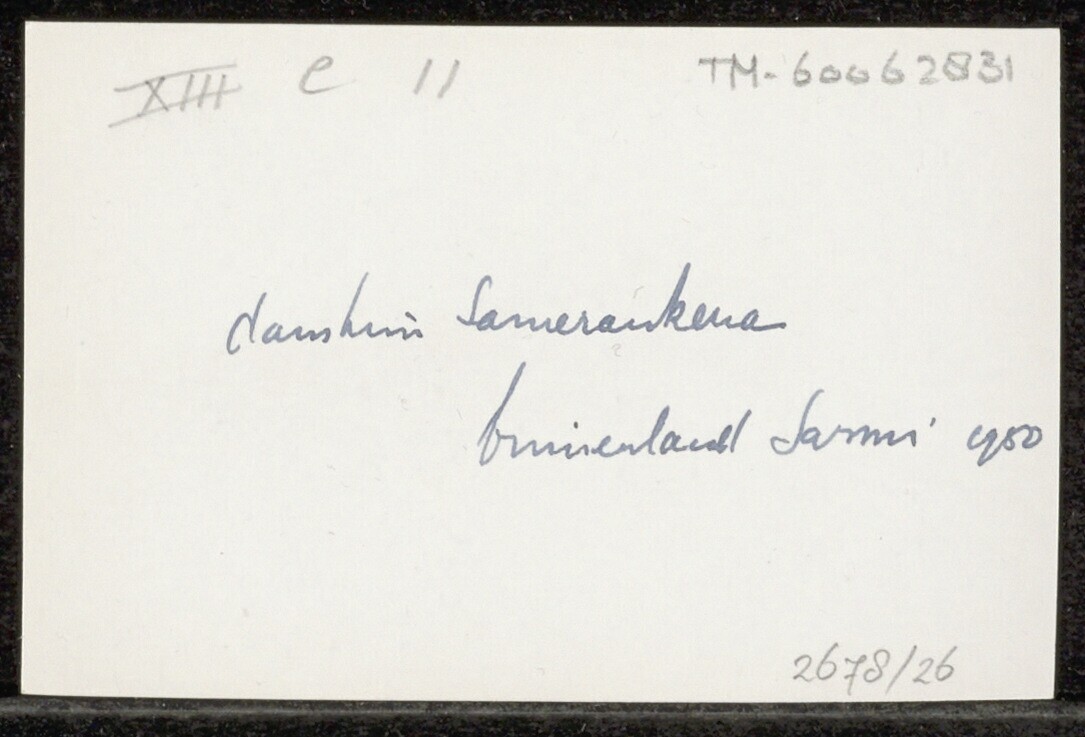 XIII C 11
TM-60062831
danshuis Samerankena
binnenland Sarmi 1950
2678/26